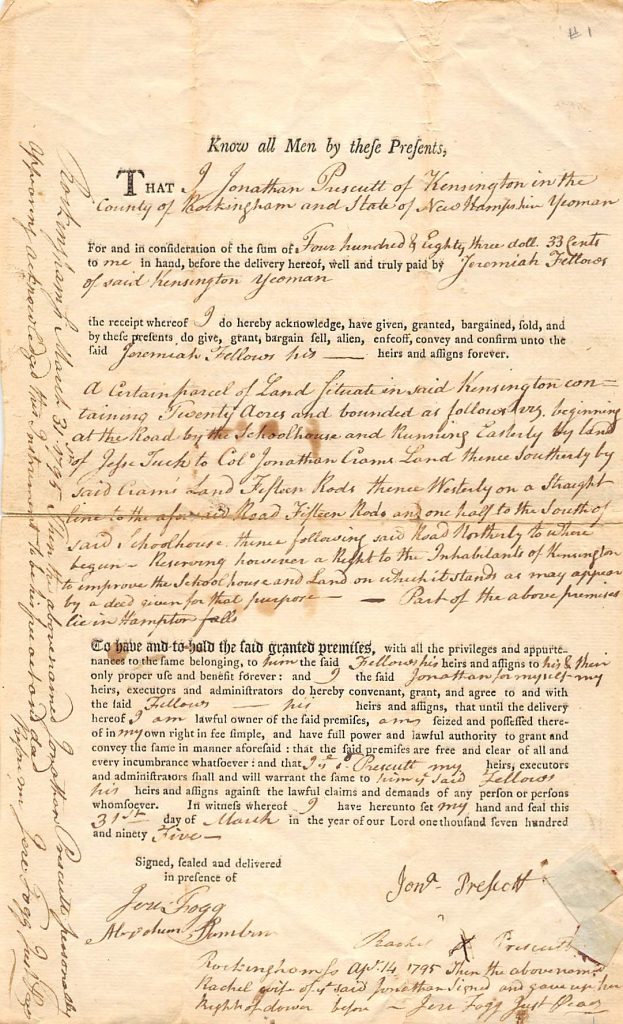 # 1
Know all Men by theſe Preſents,
THAT I Jonathan Prescutt of Kensington in the
County of Rockingham and State of New Hampshire Yeoman
For and in conſideration of the ſum of Four hundred & Eighty three doll. 33 Cents
to me in hand, before the delivery hereof, well and truly paid by Jeremiah Fellows
of said Kensington Yeoman
the receipt whereof I do hereby acknowledge, have given, granted, bargained, ſold, and
by theſe preſents do give, grant, bargain ſell, alien, enfeoff, convey and confirm unto the
ſaid Jeremiah Fellows his — heirs and aſſigns forever.
A Certain parcel of Land Situate in said Kensington con-
taining Twenty Acres and bounded as follows viz, beginning
at the Road by the Schoolhouse and Running Easterly by land
of Jesse Tuck to Colo Jonathan Crams Land thence Southerly by
said Crams Land Fifteen Rods thence Westerly on a Straight
line to the aforesaid Road Fifteen Rods and one half to the South of
said Schoolhouse, thence following said Road Northerly to where
begun – Reserving however a Right to the Inhabitants of Kensington
to improve the Schoolhouse and Land on which it stands as may appear
by a deed given for that purpose — — Part of the above premises
lie in Hampton falls
To have and to hold the ſaid granted premiſes, with all the privileges and appurte-
nances to the ſame belonging, to him the ſaid Fellows his heirs and aſſigns to his & their
only proper uſe and benefit forever: and I the ſaid Jonathan for myself my
heirs, executors and adminiſtrators do hereby convenant, grant, and agree to and with
the ſaid Fellows — his heirs and aſſigns, that until the delivery
hereof I am lawful owner of the ſaid premiſes, am ſeized and poſſeſſed there-
of in my own right in fee ſimple, and have full power and lawful authority to grant and
convey the ſame in manner aforeſaid: that the ſaid premiſes are free and clear of all and
every incumbrance whatſoever: and that I ye sd Prescutt my heirs, executors
and adminiſtrators ſhall and will warrant the ſame to him ye said Fellows
his heirs and aſſigns againſt the lawful claims and demands of any perſon or perſons
whomſoever. In witneſs whereof I have hereunto ſet my hand and ſeal this
31st day of March in the year of our Lord one thouſand ſeven hundred
and ninety Five —
Signed, ſealed and delivered
in preſence of
Jona Prescott
Jere Fogg
Abraham
Rachel X Prescutt
Rockingham ſs Apl. 14, 1795 Then the above named
Rachel wife of ye said Jonathan Signed and gave up her
Right of dower before – Jere Fogg Just Peace
Rockingham ſs March 31st 1795 Then the above named Jonathan Prescutt personally
appearing acknowledged this Instrument to be his free act and deed
Before me Jere Fogg Just Peace